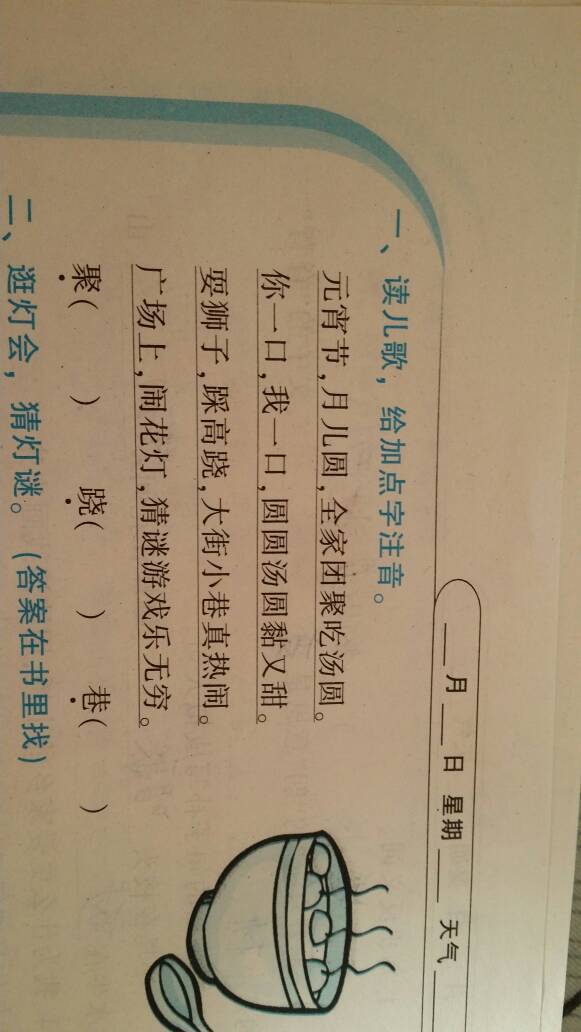 ___月___日 星期___ 天气___
一、读儿歌，给加点字注音。
元宵节，月儿圆，全家团聚吃汤圆。
你一口，我一口，圆圆汤圆黏又甜。
耍狮子，踩高跷，大街小巷真热闹。
广场上，闹花灯，猜谜游戏乐无穷。
聚（ ） 跷（ ） 巷（ ）
二、逛灯会，猜灯谜。（答案在书里找）